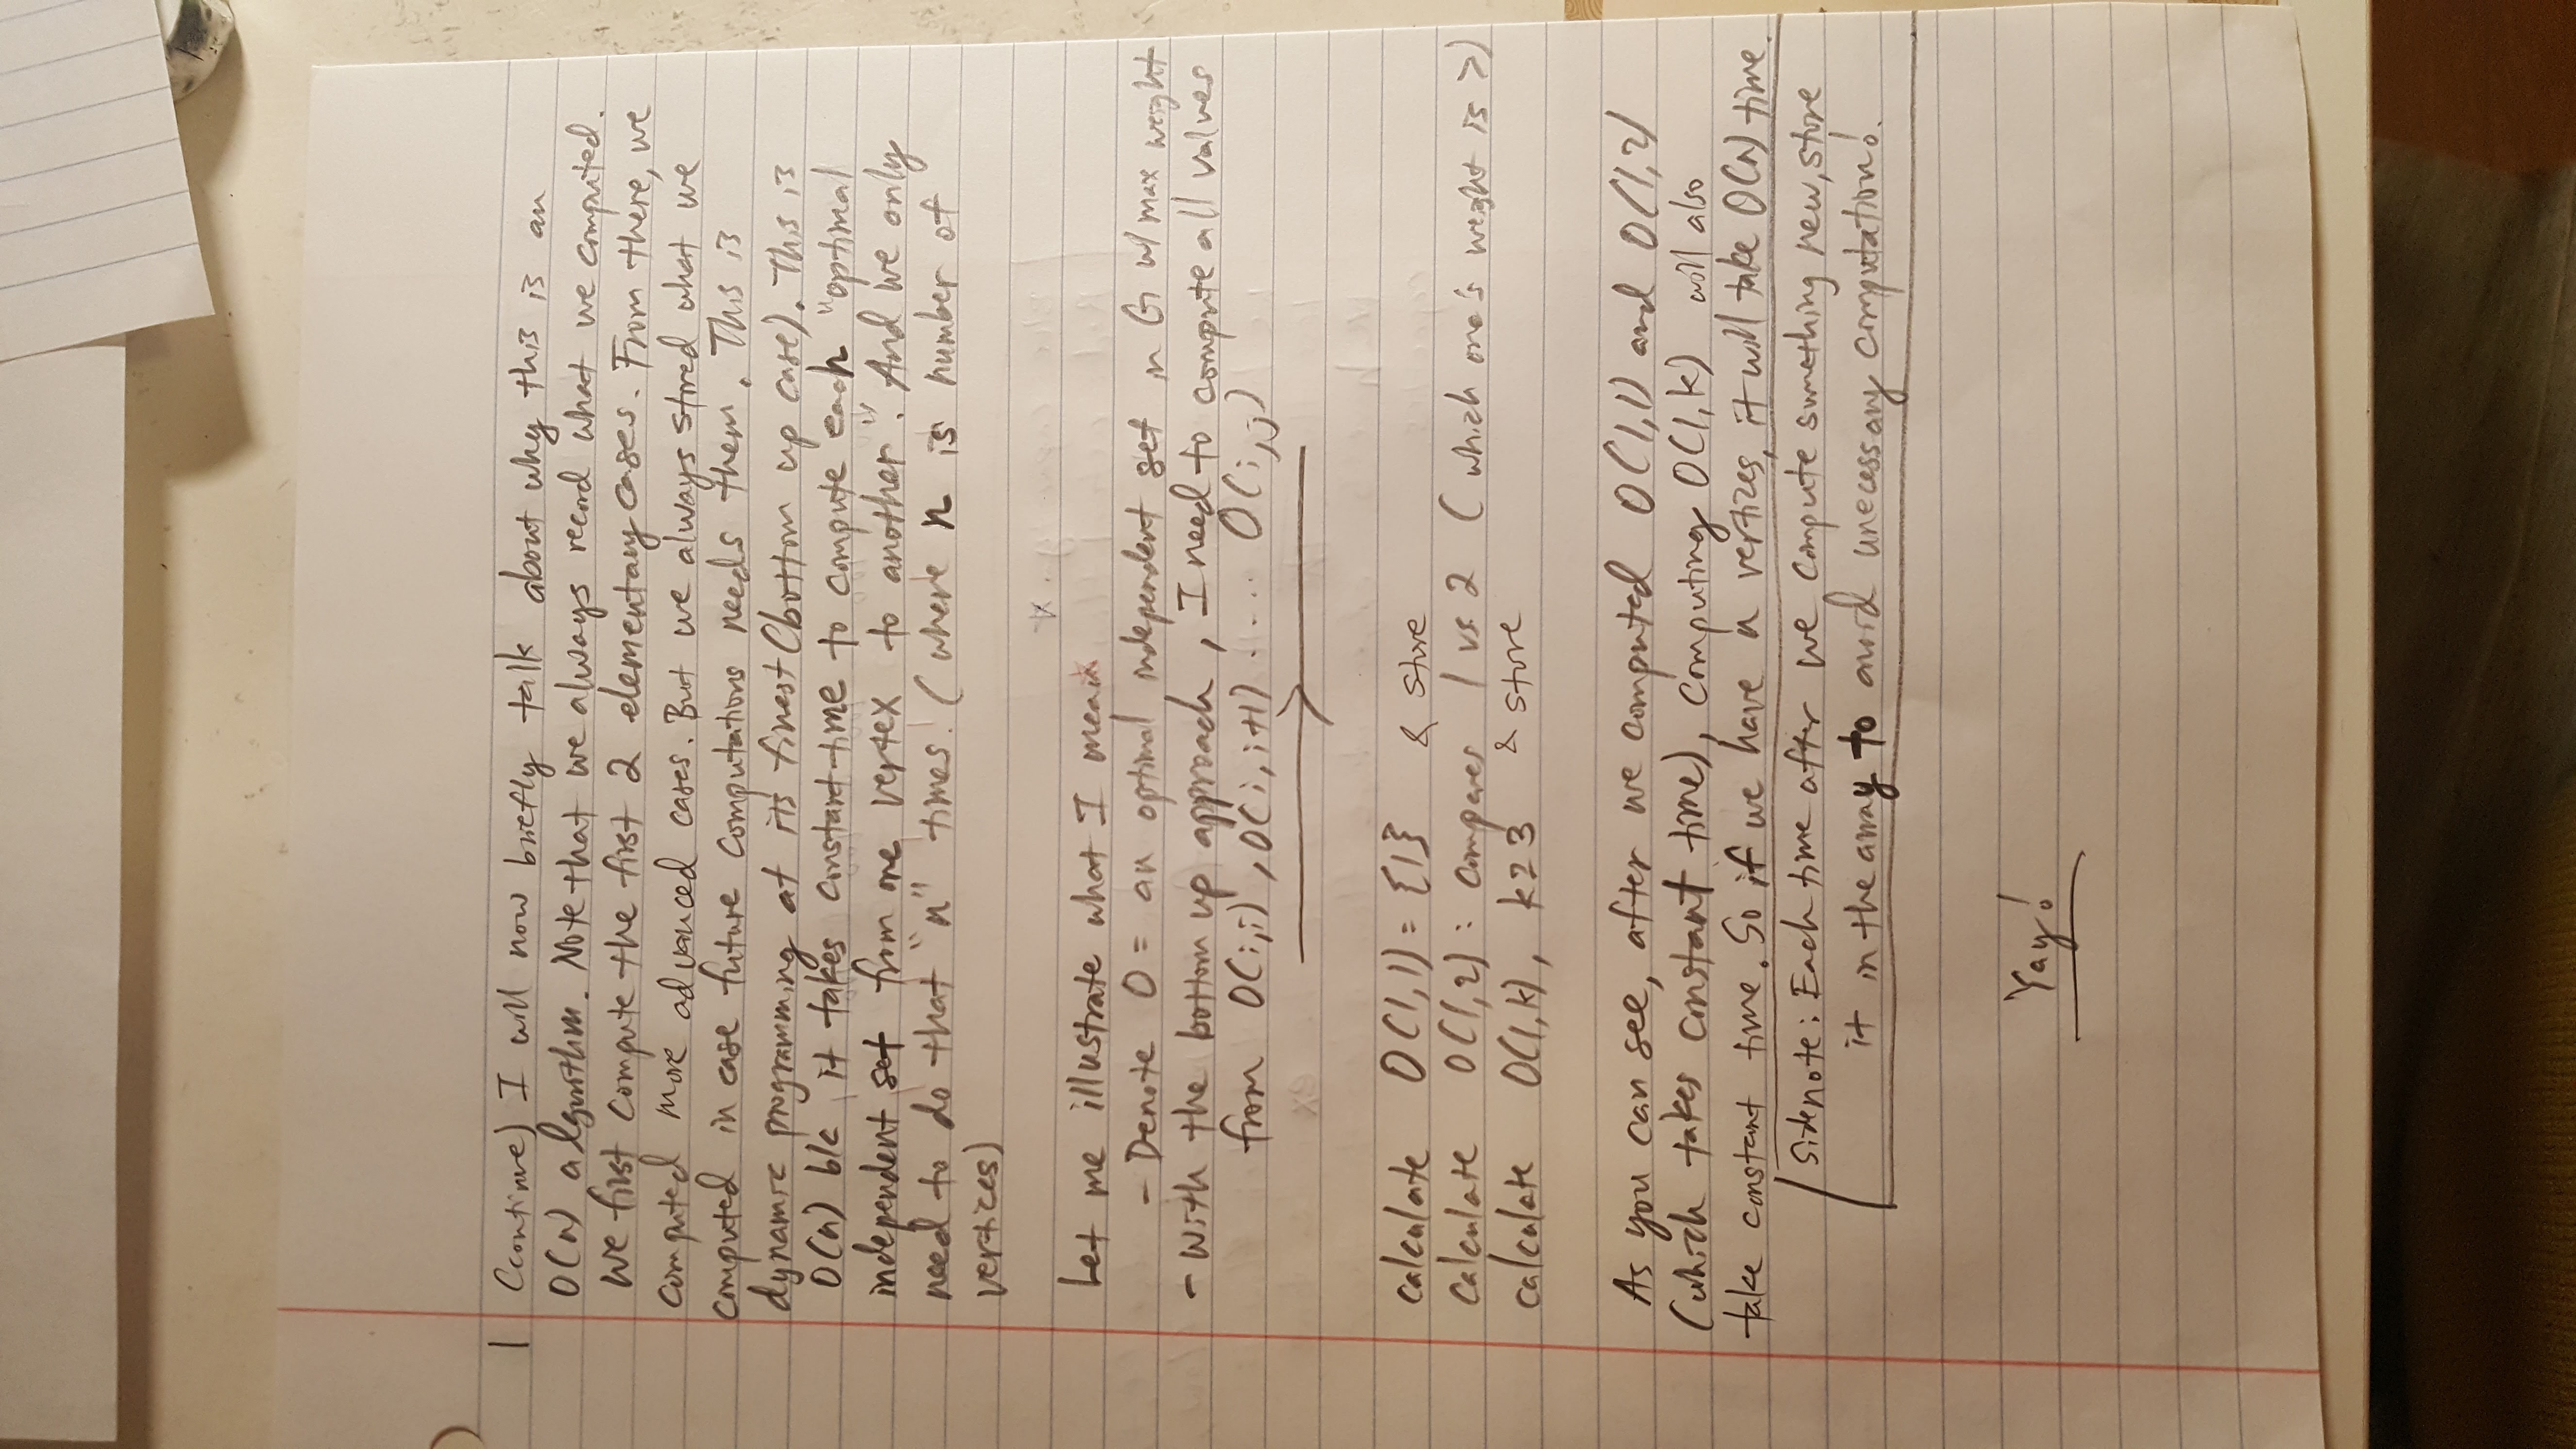 1 (continue) I will now briefly talk about why this is an
O(n) algorithm. Note that we always record what we computed.
We first compute the first 2 elementary cases. From there, we
computed more advanced cases. But we always stored what we
computed in case future computations needs them. This is
dynamic programming at its finest (bottom up case). This is
O(n) b/c it takes constant time to compute each "optimal
independent set from one vertex to another". And we only
need to do that "n" times! (where n is number of
vertices)
Let me illustrate what I mean
- Denote O = an optimal independent set in G w/ max weight
- With the bottom up approach, I need to compute all values
from O(i,i), O(i,i+1) .... O(i,j)
calculate O(1,1) = {1} & store
calculate O(1,2): compares 1 vs. 2 (which one's weight is >)
& store
calculate O(1,k), k≥3
As you can see, after we computed O(1,1) and O(1,2)
(which takes constant time), computing O(1,k) will also
take constant time. So if we have n vertices, it will take O(n) time.
Sidenote: Each time after we compute something new, store
it in the array to avoid unecessary computation!
Yay!